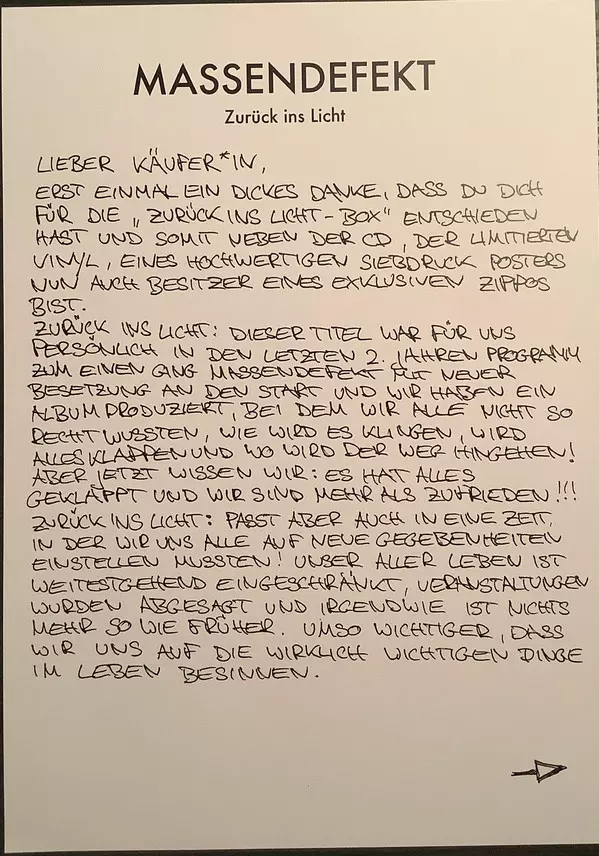 MASSENDEFEKT
Zurück ins Licht
LIEBER KÄUFER*IN,
ERST EINMAL EIN DICKES DANKE, DASS DU DICH
FÜR DIE „ZURÜCK INS LICHT-BOX" ENTSCHIEDEN
HAST UND SOMIT NEBEN DER CD, DER LIMITIERTEN
VINYL, EINES HOCHWERTIGEN SIEBDRUCK POSTERS
NUN AUCH BESITZER EINES EXKLUSIVEN ZIPPOS
BIST.
ZURÜCK INS LICHT: DIESER TITEL WAR FÜR UNS
PERSÖNLICH IN DEN LETZTEN 2. JAHREN PROGRAMM
ZUM EINEN GING MASSENDEFEKT MIT NEUER
BESETZUNG AN DEN START UND WIR HABEN EIN
ALBUM PRODUZIERT, BEI DEM WIR ALLE NICHT SO
RECHT WUSSTEN, WIE WIRD ES KLINGEN, WIRD
ALLES KLAPPEN UND WO WIRD DER WEG HINGEHEN!
ABER JETZT WISSEN WIR: ES HAT ALLES
GEKLAPPT UND WIR SIND MEHR ALS ZUFRIEDEN!!!
ZURÜCK INS LICHT: PASST ABER AUCH IN EINE ZEIT,
IN DER WIR UNS ALLE AUF NEUE GEGEBENHEITEN
EINSTELLEN MUSSTEN! UNSER ALLER LEBEN IST
WEITESTGEHEND EINGESCHRÄNKT, VERANSTALTUNGEN
WURDEN ABGESAGT UND IRGENDWIE IST NICHTS
MEHR SO WIE FRÜHER. UMSO WICHTIGER, DASS
WIR UNS AUF DIE WIRKLICH WICHTIGEN DINGE
IM LEBEN BESINNEN.